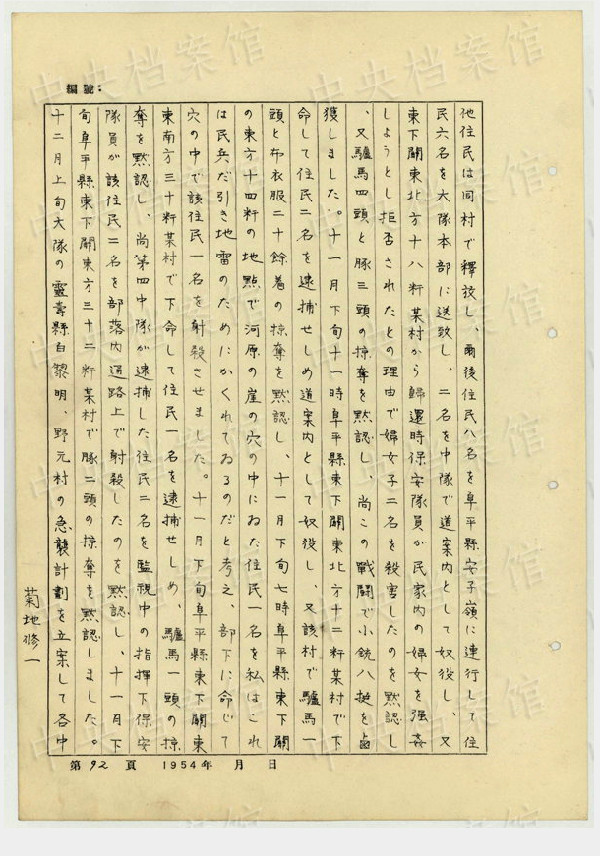 編號：
他住民は同村で釋放し、爾後住民八名を阜平縣安子嶺に連行して住
民六名を大隊本部に送致し、二名を中隊で道案内として奴役し、又
東下關東北方十八粁某村から歸還時保安隊員が民家内の婦女を强姦
しようとし拒否されたとの理由で婦女子二名を殺害したのを黙認し
、又驢馬四頭と豚三頭の掠奪を黙認し、尚この戰鬪で小銃八挺を鹵
獲しました。十一月下旬十一時阜平縣東下關東北方十二粁某村で下
命して住民二名を逮捕せしめ道案内として奴役し、又該村で驢馬一
頭と布衣服二十餘着の掠奪を黙認し、十一月下旬七時阜平縣東下關
の東方十四粁の地點で河原の崖の穴の中にゐた住民一名を私はこれ
は民兵だ引き地雷のためにかくれてゐるのだと考之、部下に命じて
穴の中で該住民一名を射殺させました。十一月下旬阜平縣東下關東
東南方三十粁某村で下命して住民一名を逮捕せしめ、驢馬一頭の掠
奪を黙認し、尚第四中隊が逮捕した住民二名を監視中の指揮下保安
隊員が該住民二名を部落内通路上で射殺したのを黙認し、十一月下
旬阜平縣東下關東方三十二粁某村で豚二頭の掠奪を黙認しました。
十二月上旬大隊の靈壽縣白黎明、野元村の急襲計劃を立案して各中
菊地修一
第 92 頁 1954年 月 日
中央档案馆